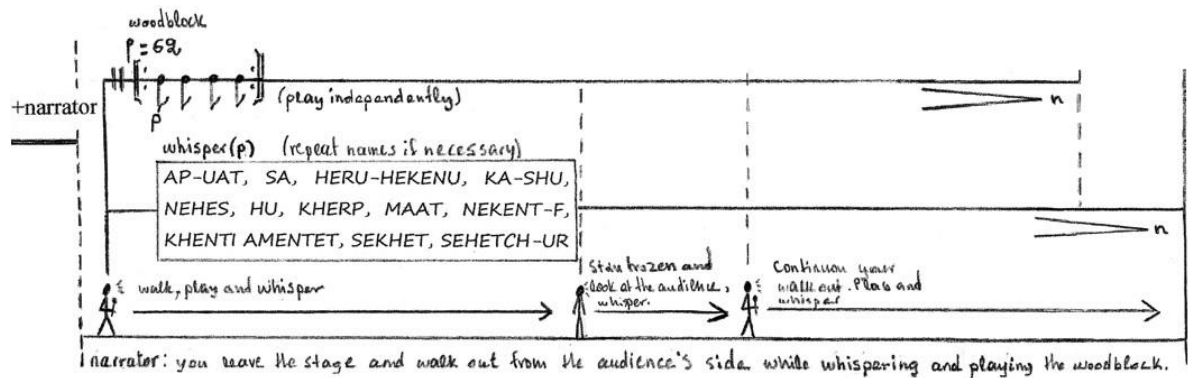 woodblock
= 62
+narrator
p
(play independently)
n
whisper(p) (repeat names if necessary)
AP-UAT, SA, HERU-HEKENU, KA-SHU,
NEHES, HU, KHERP, MAAT, NEKENT-F,
KHENTI AMENTET, SEKHET, SEHETCH-UR
n
walk, play and whisper
Stay frozen and
look at the audience,
whisper.
Continue your
walk out. Play and
whisper
narrator: you leave the stage and walk out from the audience's side while whispering and playing the woodblock.